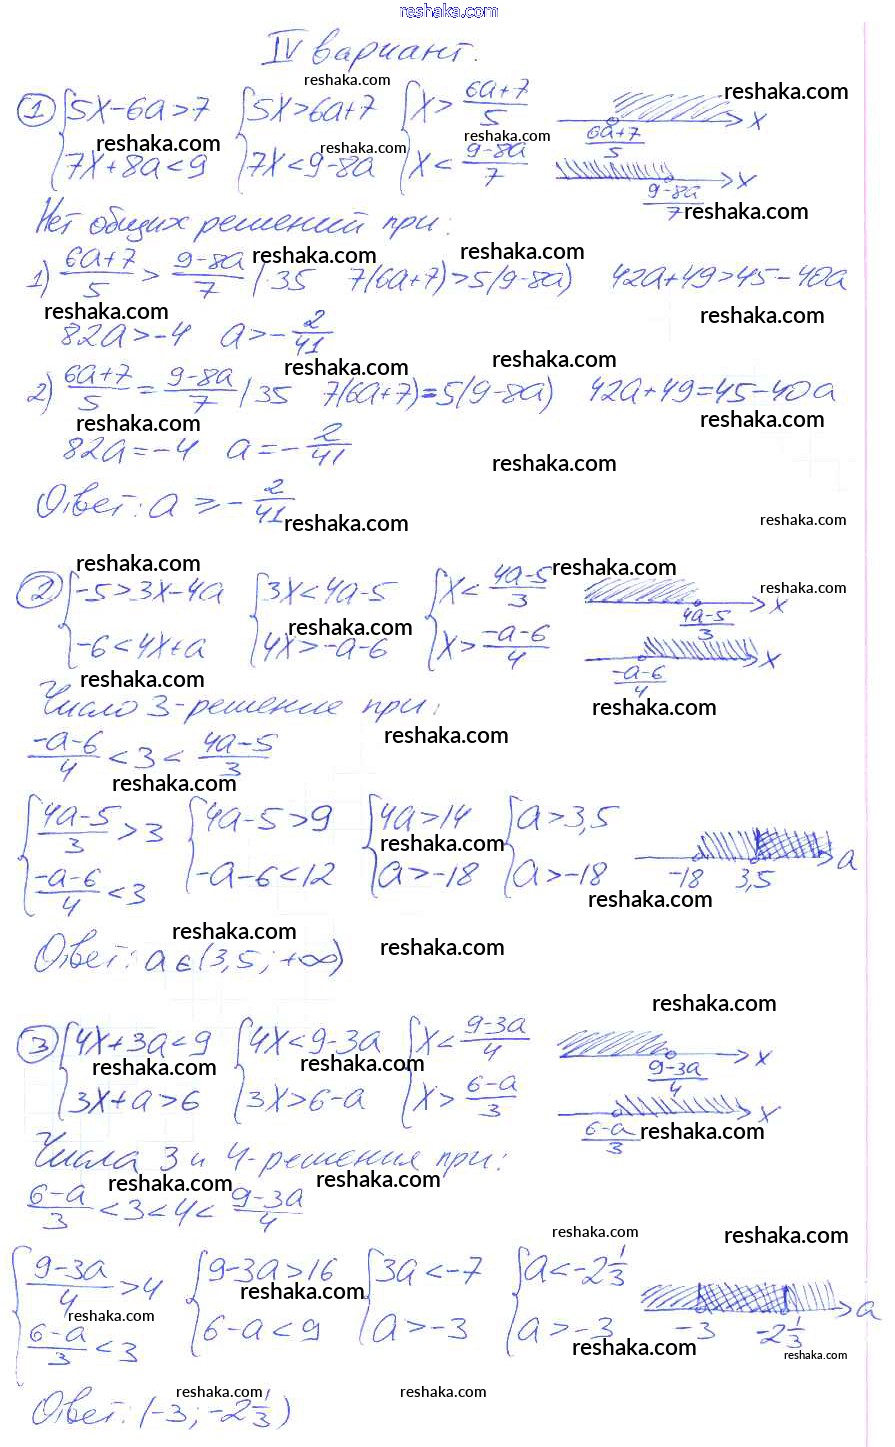 reshaka.com
IV вариант.
① { 5x-6a>7 { 5x>6a+7 { x> (6a+7)/5
{ 7x+8a<9 { 7x<9-8a { x< (9-8a)/7
(6a+7)/5 x
(9-8a)/7 x
Нет общих решений при:
1) (6a+7)/5 > (9-8a)/7 |·35 7(6a+7)>5(9-8a) 42a+49>45-40a
82a>-4 a>-2/41
2) (6a+7)/5 = (9-8a)/7 |·35 7(6a+7)=5(9-8a) 42a+49=45-40a
82a=-4 a=-2/41
Ответ: a ⩾ -2/41
② { -5>3x-4a { 3x<4a-5 { x< (4a-5)/3
{ -6<4x+a { 4x>-a-6 { x> (-a-6)/4
(4a-5)/3 x
(-a-6)/4 x
Число 3-решение при:
(-a-6)/4 <3< (4a-5)/3
{ (4a-5)/3 >3 { 4a-5>9 { 4a>14 { a>3,5
{ (-a-6)/4 <3 { -a-6<12 { a>-18 { a>-18
-18 3,5 a
Ответ: a∈(3,5; +∞)
③ { 4x+3a<9 { 4x<9-3a { x< (9-3a)/4
{ 3x+a>6 { 3x>6-a { x> (6-a)/3
(9-3a)/4 x
(6-a)/3 x
Числа 3 и 4-решения при:
(6-a)/3 <3<4< (9-3a)/4
{ (9-3a)/4 >4 { 9-3a>16 { 3a<-7 { a<-2 1/3
{ (6-a)/3 <3 { 6-a<9 { a>-3 { a>-3
-3 -2 1/3 a
Ответ: (-3; -2 1/3)